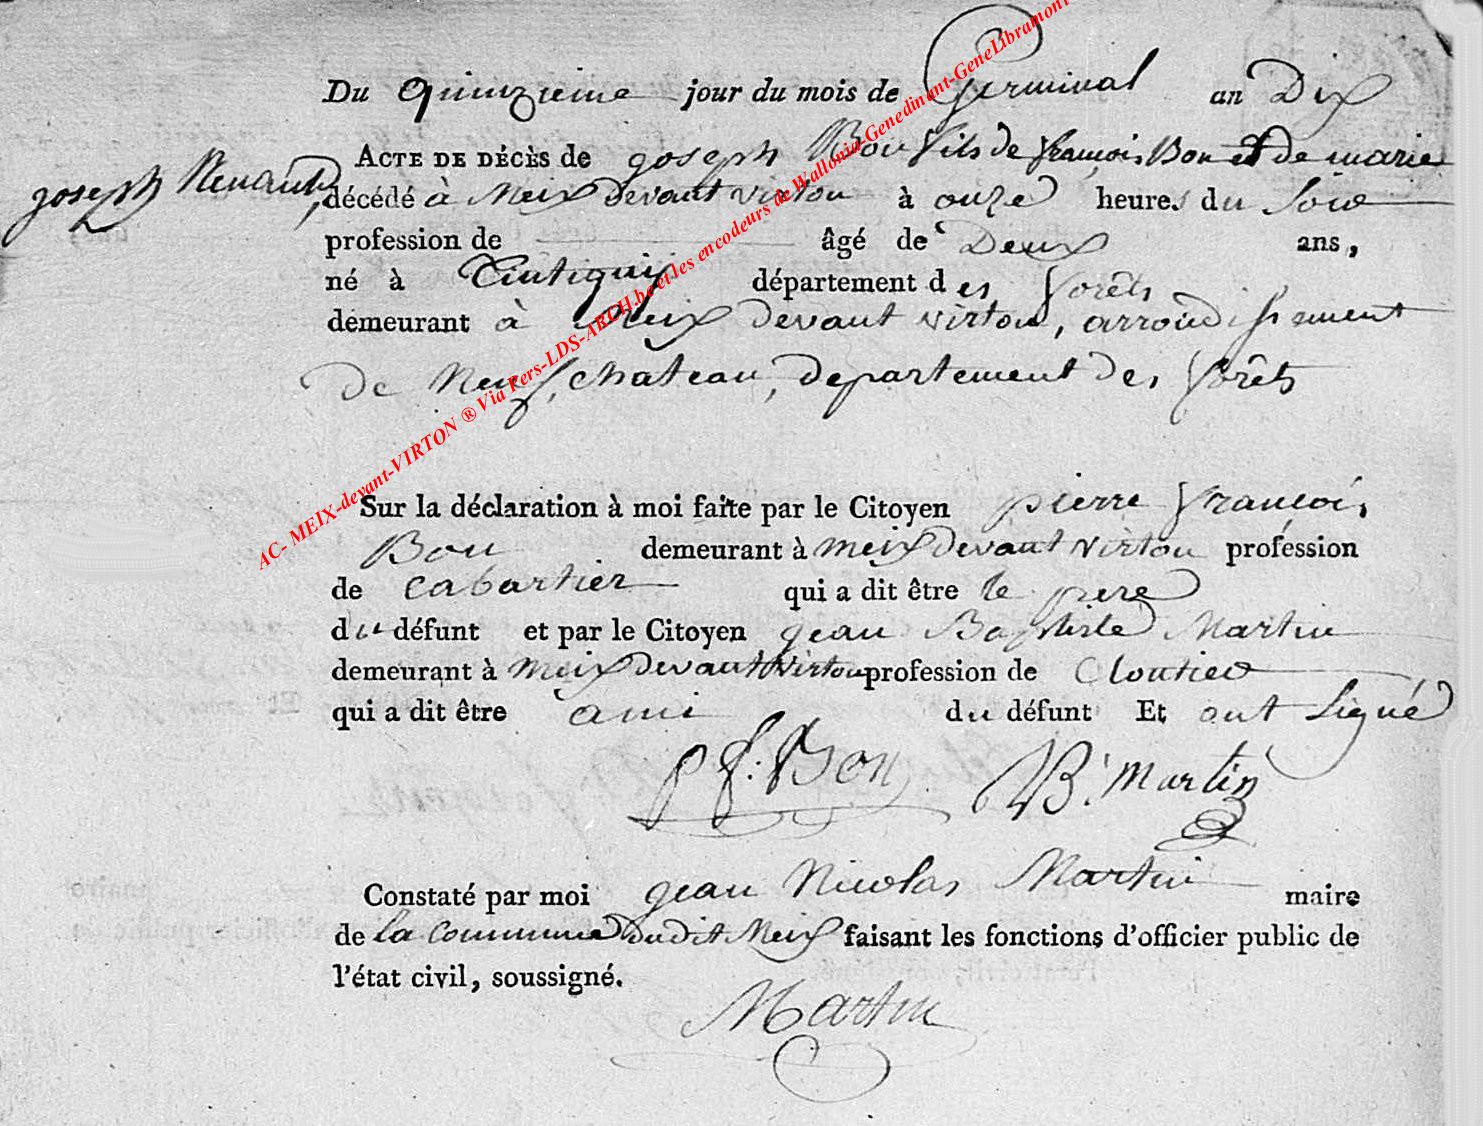 Du quinzieme jour du mois de Germinal an Dix
ACTE DE DÉCÈS de joseph Bon fils de francois Bon et de marie
joseph Renauld,
décédé à Meix devant virton à onze heures du soir
profession de âgé de Deux ans,
né à Tintigny département des forêts
demeurant à Meix devant virton, arrondissement
de Neufchateau, departement des forêts
Sur la déclaration à moi faite par le Citoyen pierre francois
Bon demeurant à meix devant virton profession
de cabartier qui a dit être le pere
du défunt et par le Citoyen jean Baptiste Martin
demeurant à meix devant virton profession de Cloutier
qui a dit être ami du défunt Et ont signé
p f: Bon B. Martin
Constaté par moi jean Nicolas Martin maire
de la commune dudit Meix faisant les fonctions d'officier public de
l'état civil, soussigné.
Martin
AC- MEIX-devant-VIRTON ® Via Pers-LDS-ARCH.be et les encodeurs de Wallonia-Genedinant-GeneLibramont